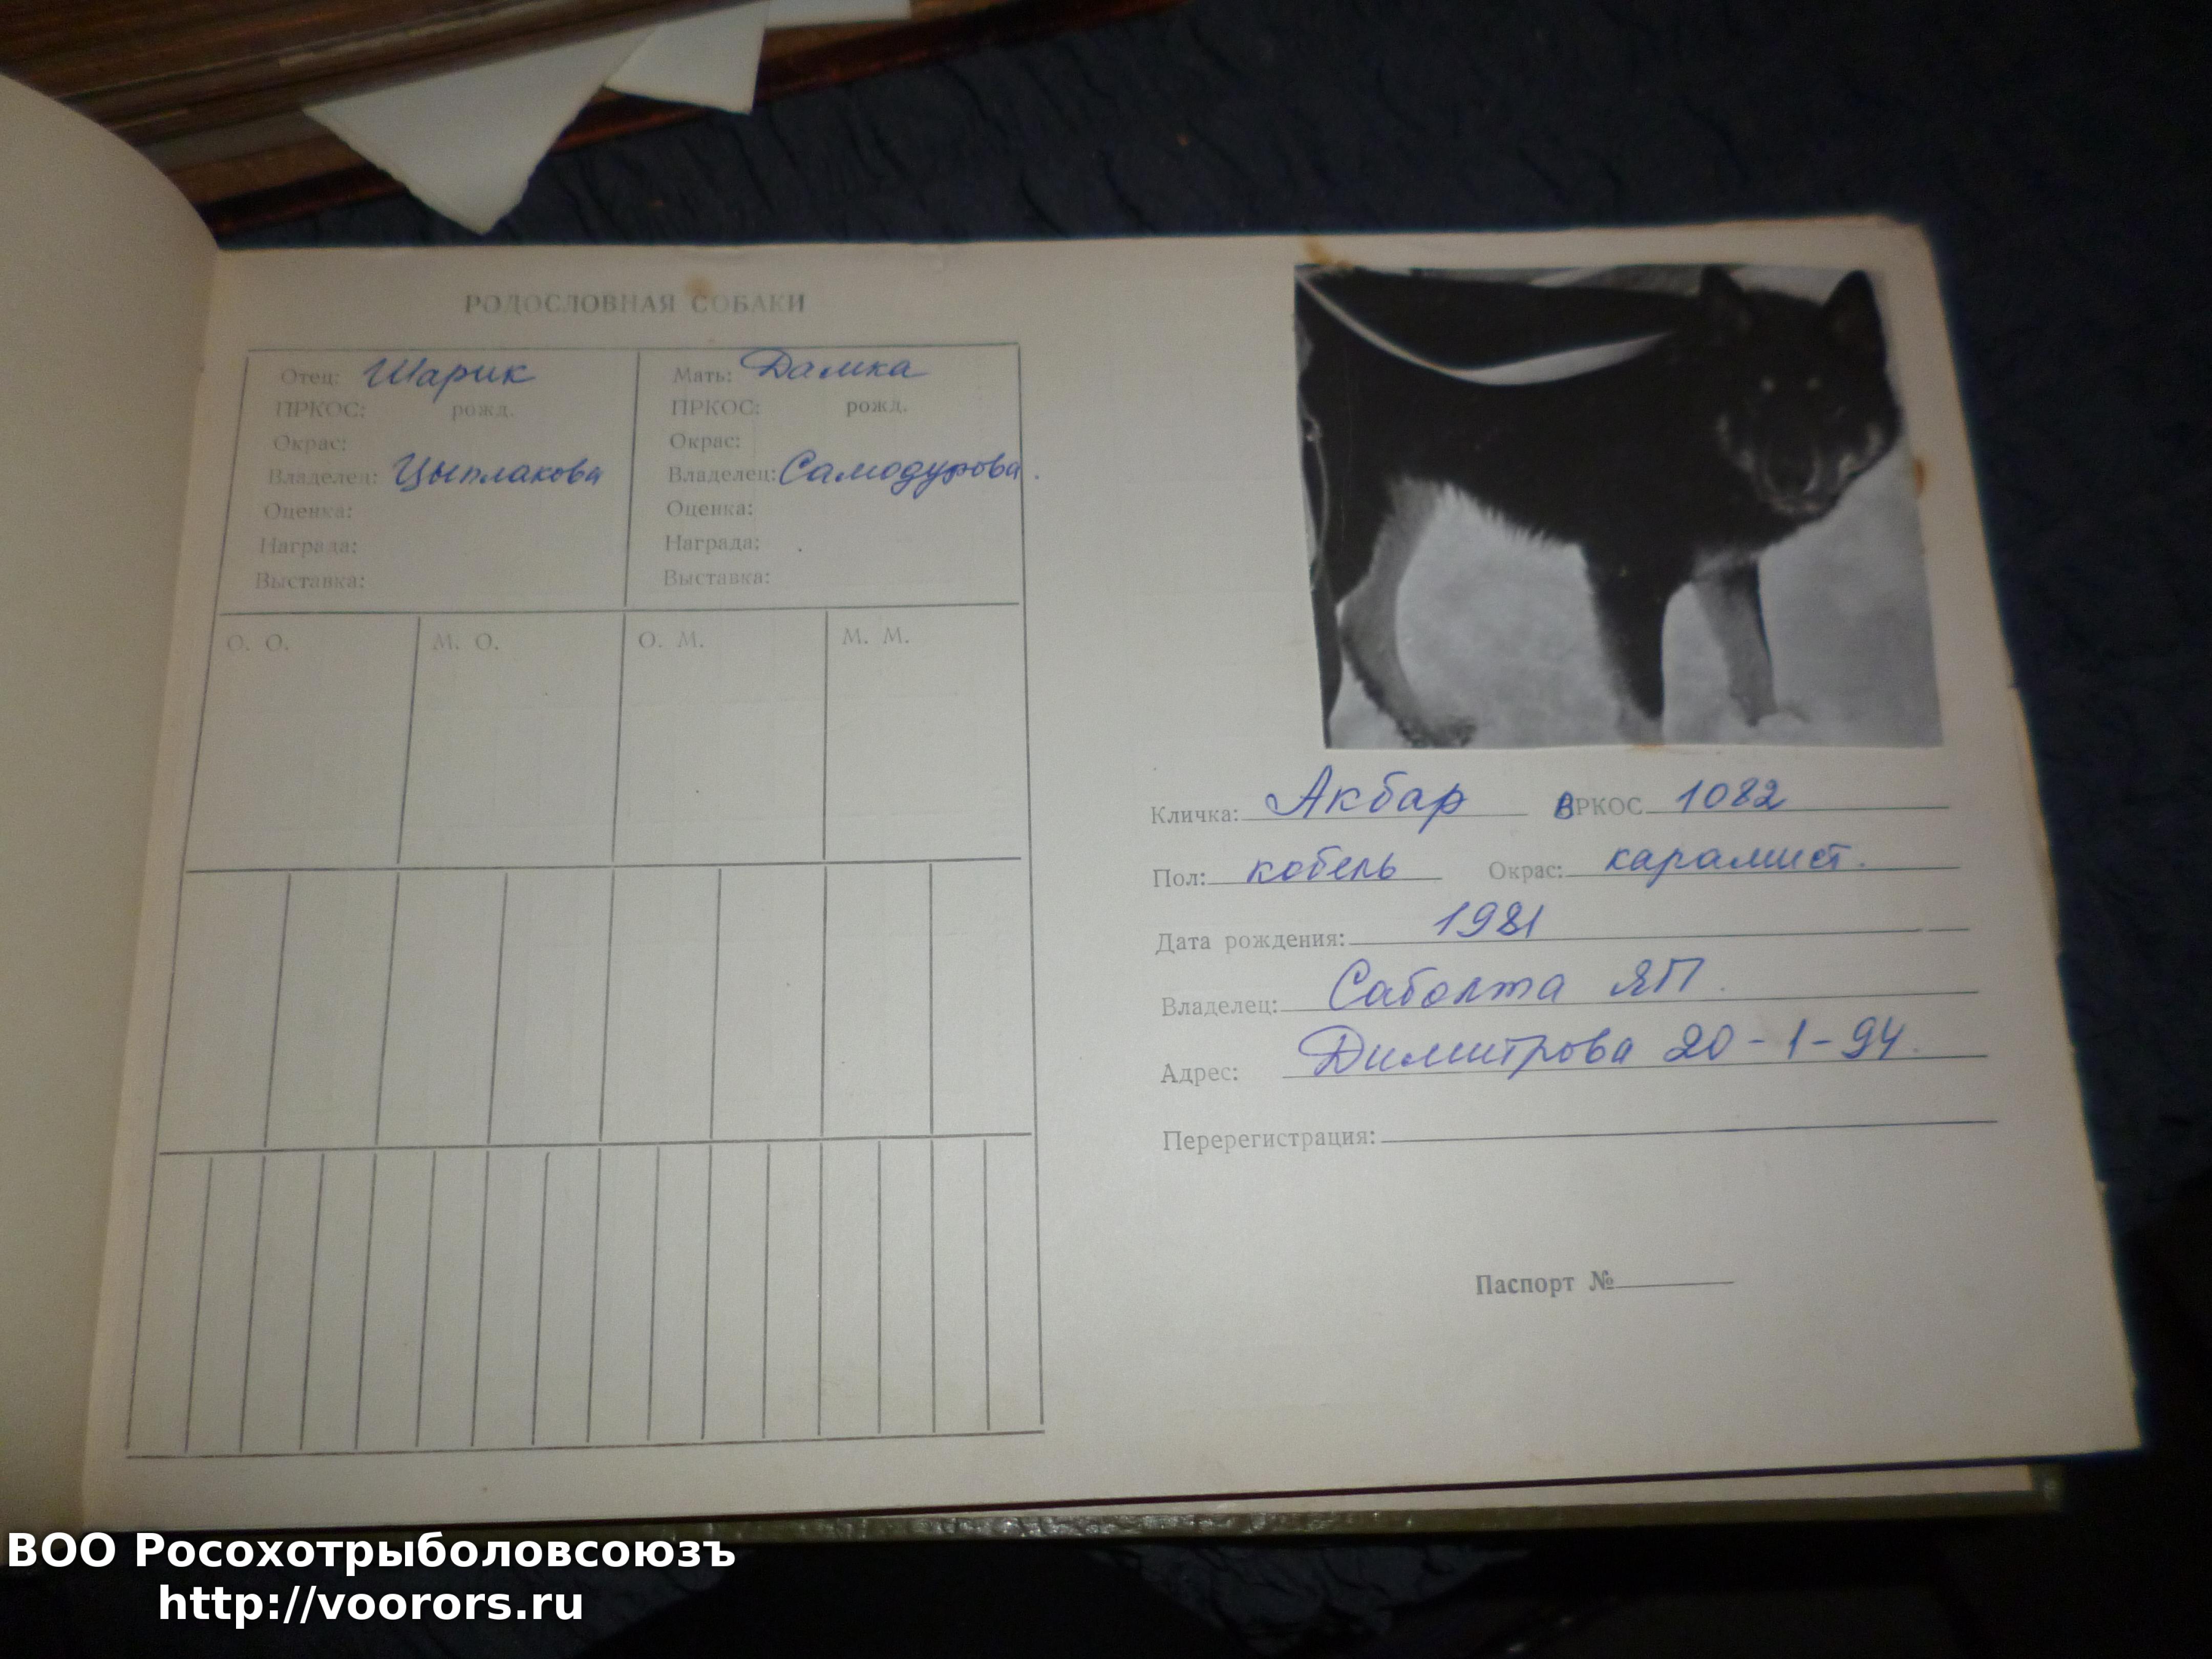 РОДОСЛОВНАЯ СОБАКИ
Отец: Шарик
ПРКОС: рожд.
Окрас:
Владелец: Цыплакова
Оценка:
Награда:
Выставка:
Мать: Дамка
ПРКОС: рожд.
Окрас:
Владелец: Самодурова.
Оценка:
Награда:
Выставка:
О. О. М. О. О. М. М. М.
Кличка: Акбар ВРКОС 1082
Пол: кобель Окрас: карамист.
Дата рождения: 1981
Владелец: Саболта ЯП.
Адрес: Димитрова 20-1-94.
Перерегистрация:
Паспорт №
ВОО Росохотрыболовсоюзъ
http://voorors.ru